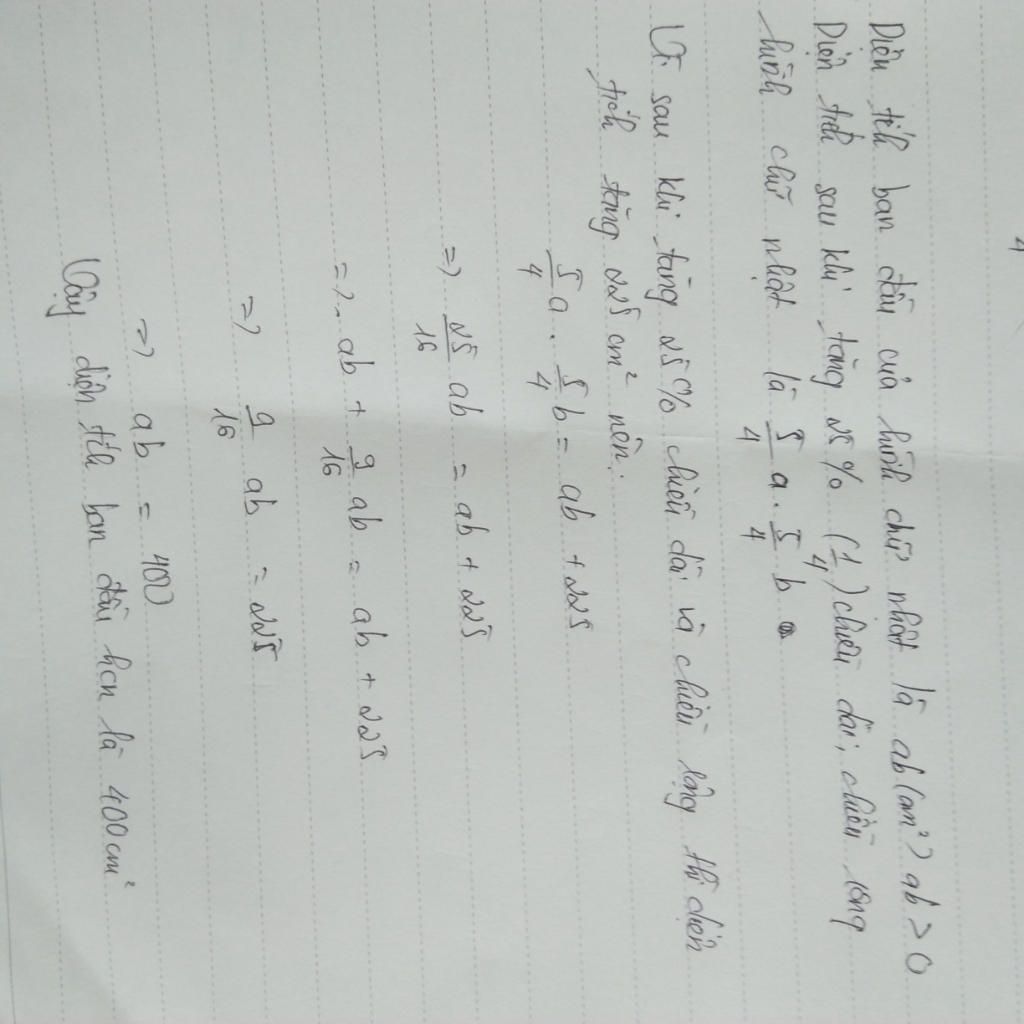 4
Diện tích ban đầu của hình chữ nhật là ab (cm²) ab > 0
Diện tích sau khi tăng 25% (1/4) chiều dài, chiều rộng
hình chữ nhật là 5/4 a . 5/4 b
Vì sau khi tăng 25% chiều dài và chiều rộng thì diện
tích tăng 225 cm² nên:
5/4 a . 5/4 b = ab + 225
=> 25/16 ab = ab + 225
=> ab + 9/16 ab = ab + 225
=> 9/16 ab = 225
=> ab = 400
Vậy diện tích ban đầu hcn là 400 cm²